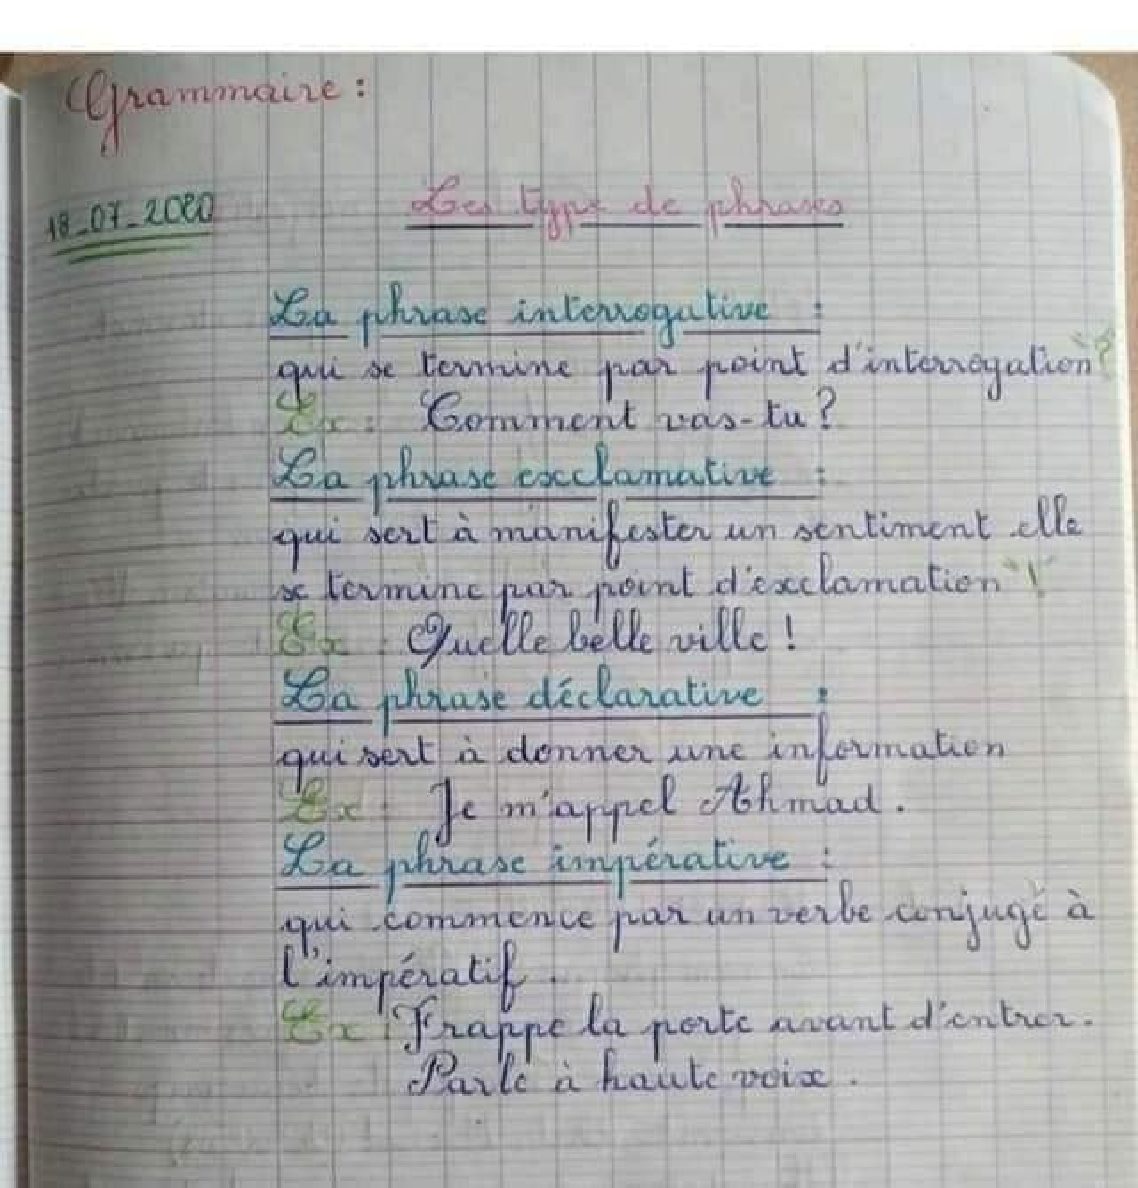 Grammaire :
18-07-2020
Les type de phrases
La phrase interrogative :
qui se termine par point d'interrogation "?
Ex : Comment vas-tu ?
La phrase exclamative :
qui sert à manifester un sentiment elle
se termine par point d'exclamation "!
Ex : Quelle belle ville !
La phrase déclarative :
qui sert à donner une information
Ex : Je m'appel Ahmad .
La phrase impérative :
qui commence par un verbe conjugé à
l'impératif .
Ex : Frappe la porte avant d'entrer .
Parle à haute voix .